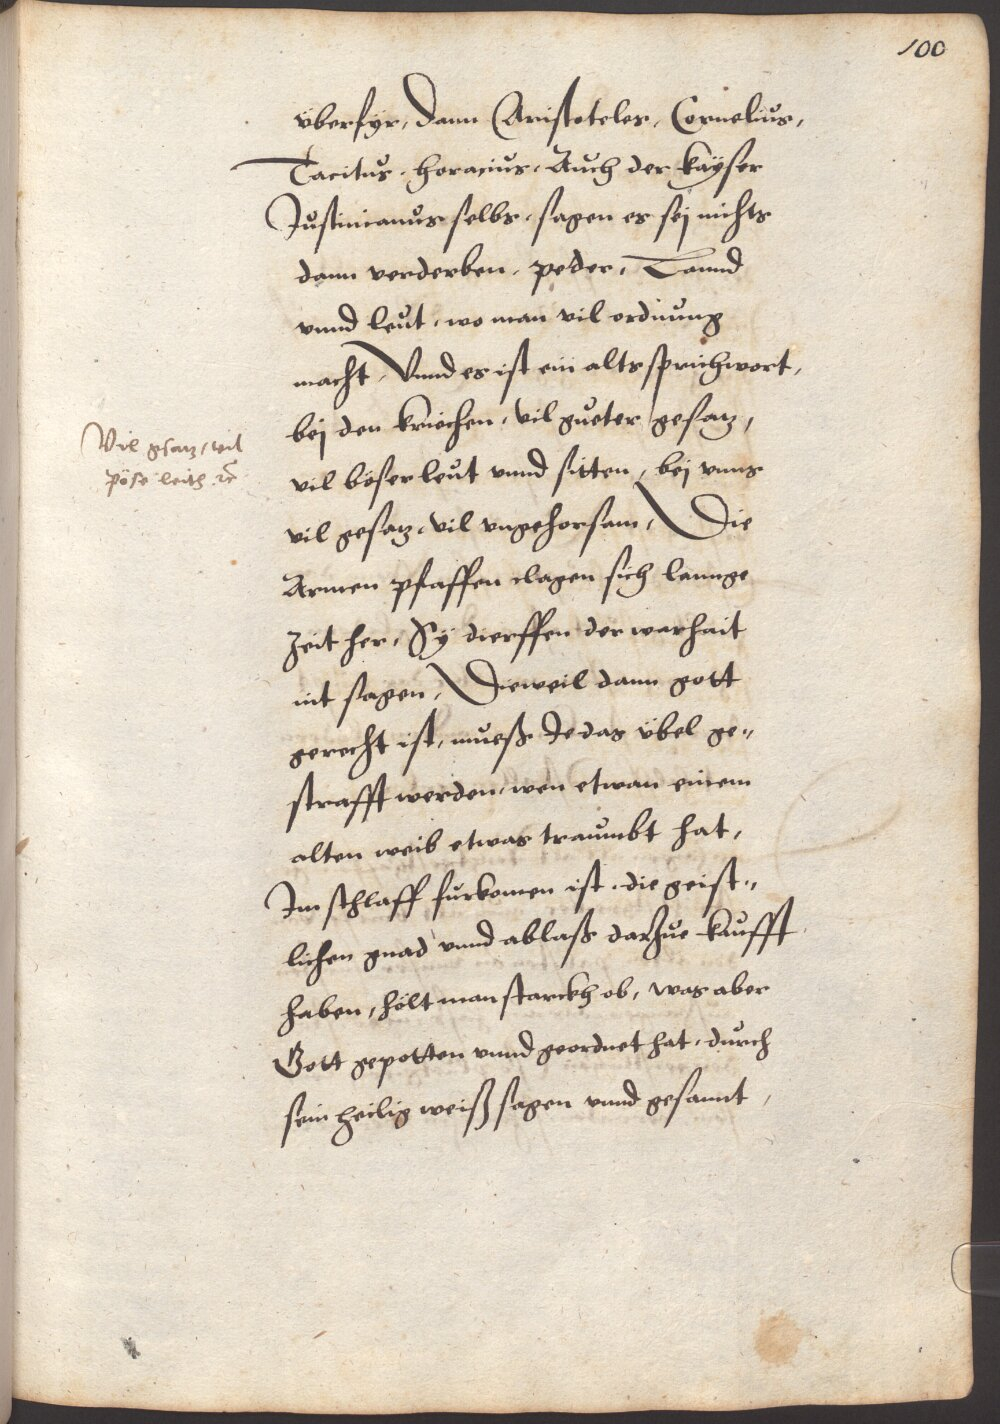 100
überfyr, dann Aristoteles, Cornelius,
Tacitus, horacius, Auch der kayser
Justinianus selbs, sagen es sej nichts
dann verderben, peder, Lannd
vnnd leut, wo man vil ordnung
macht, Vnnd es ist ein alts sprichwort,
bej den kriechen, vil gueter gesatz,
vil böser leut vnnd sitten, bej vnns
vil gesatz, vil vngehorsam, Die
Armen pfaffen clagen sich lannge
Zeit her, Sy dierffen der warhait
nit sagen, Dieweil dann gott
gerecht ist, mueß Je das übel ge¬
strafft werden, wen etwan einem
alten weib etwas traumbt hat,
Im schlaff fürkomen ist, die geist¬
lichen gnad vnnd ablaß darZue kaufft
haben, hölt man starckh ob, was aber
Gott gepotten vnnd geordnet hat, durch
sein heilig weißsagen vnnd gesannt,
Vil gsatz, vil
pöse leith